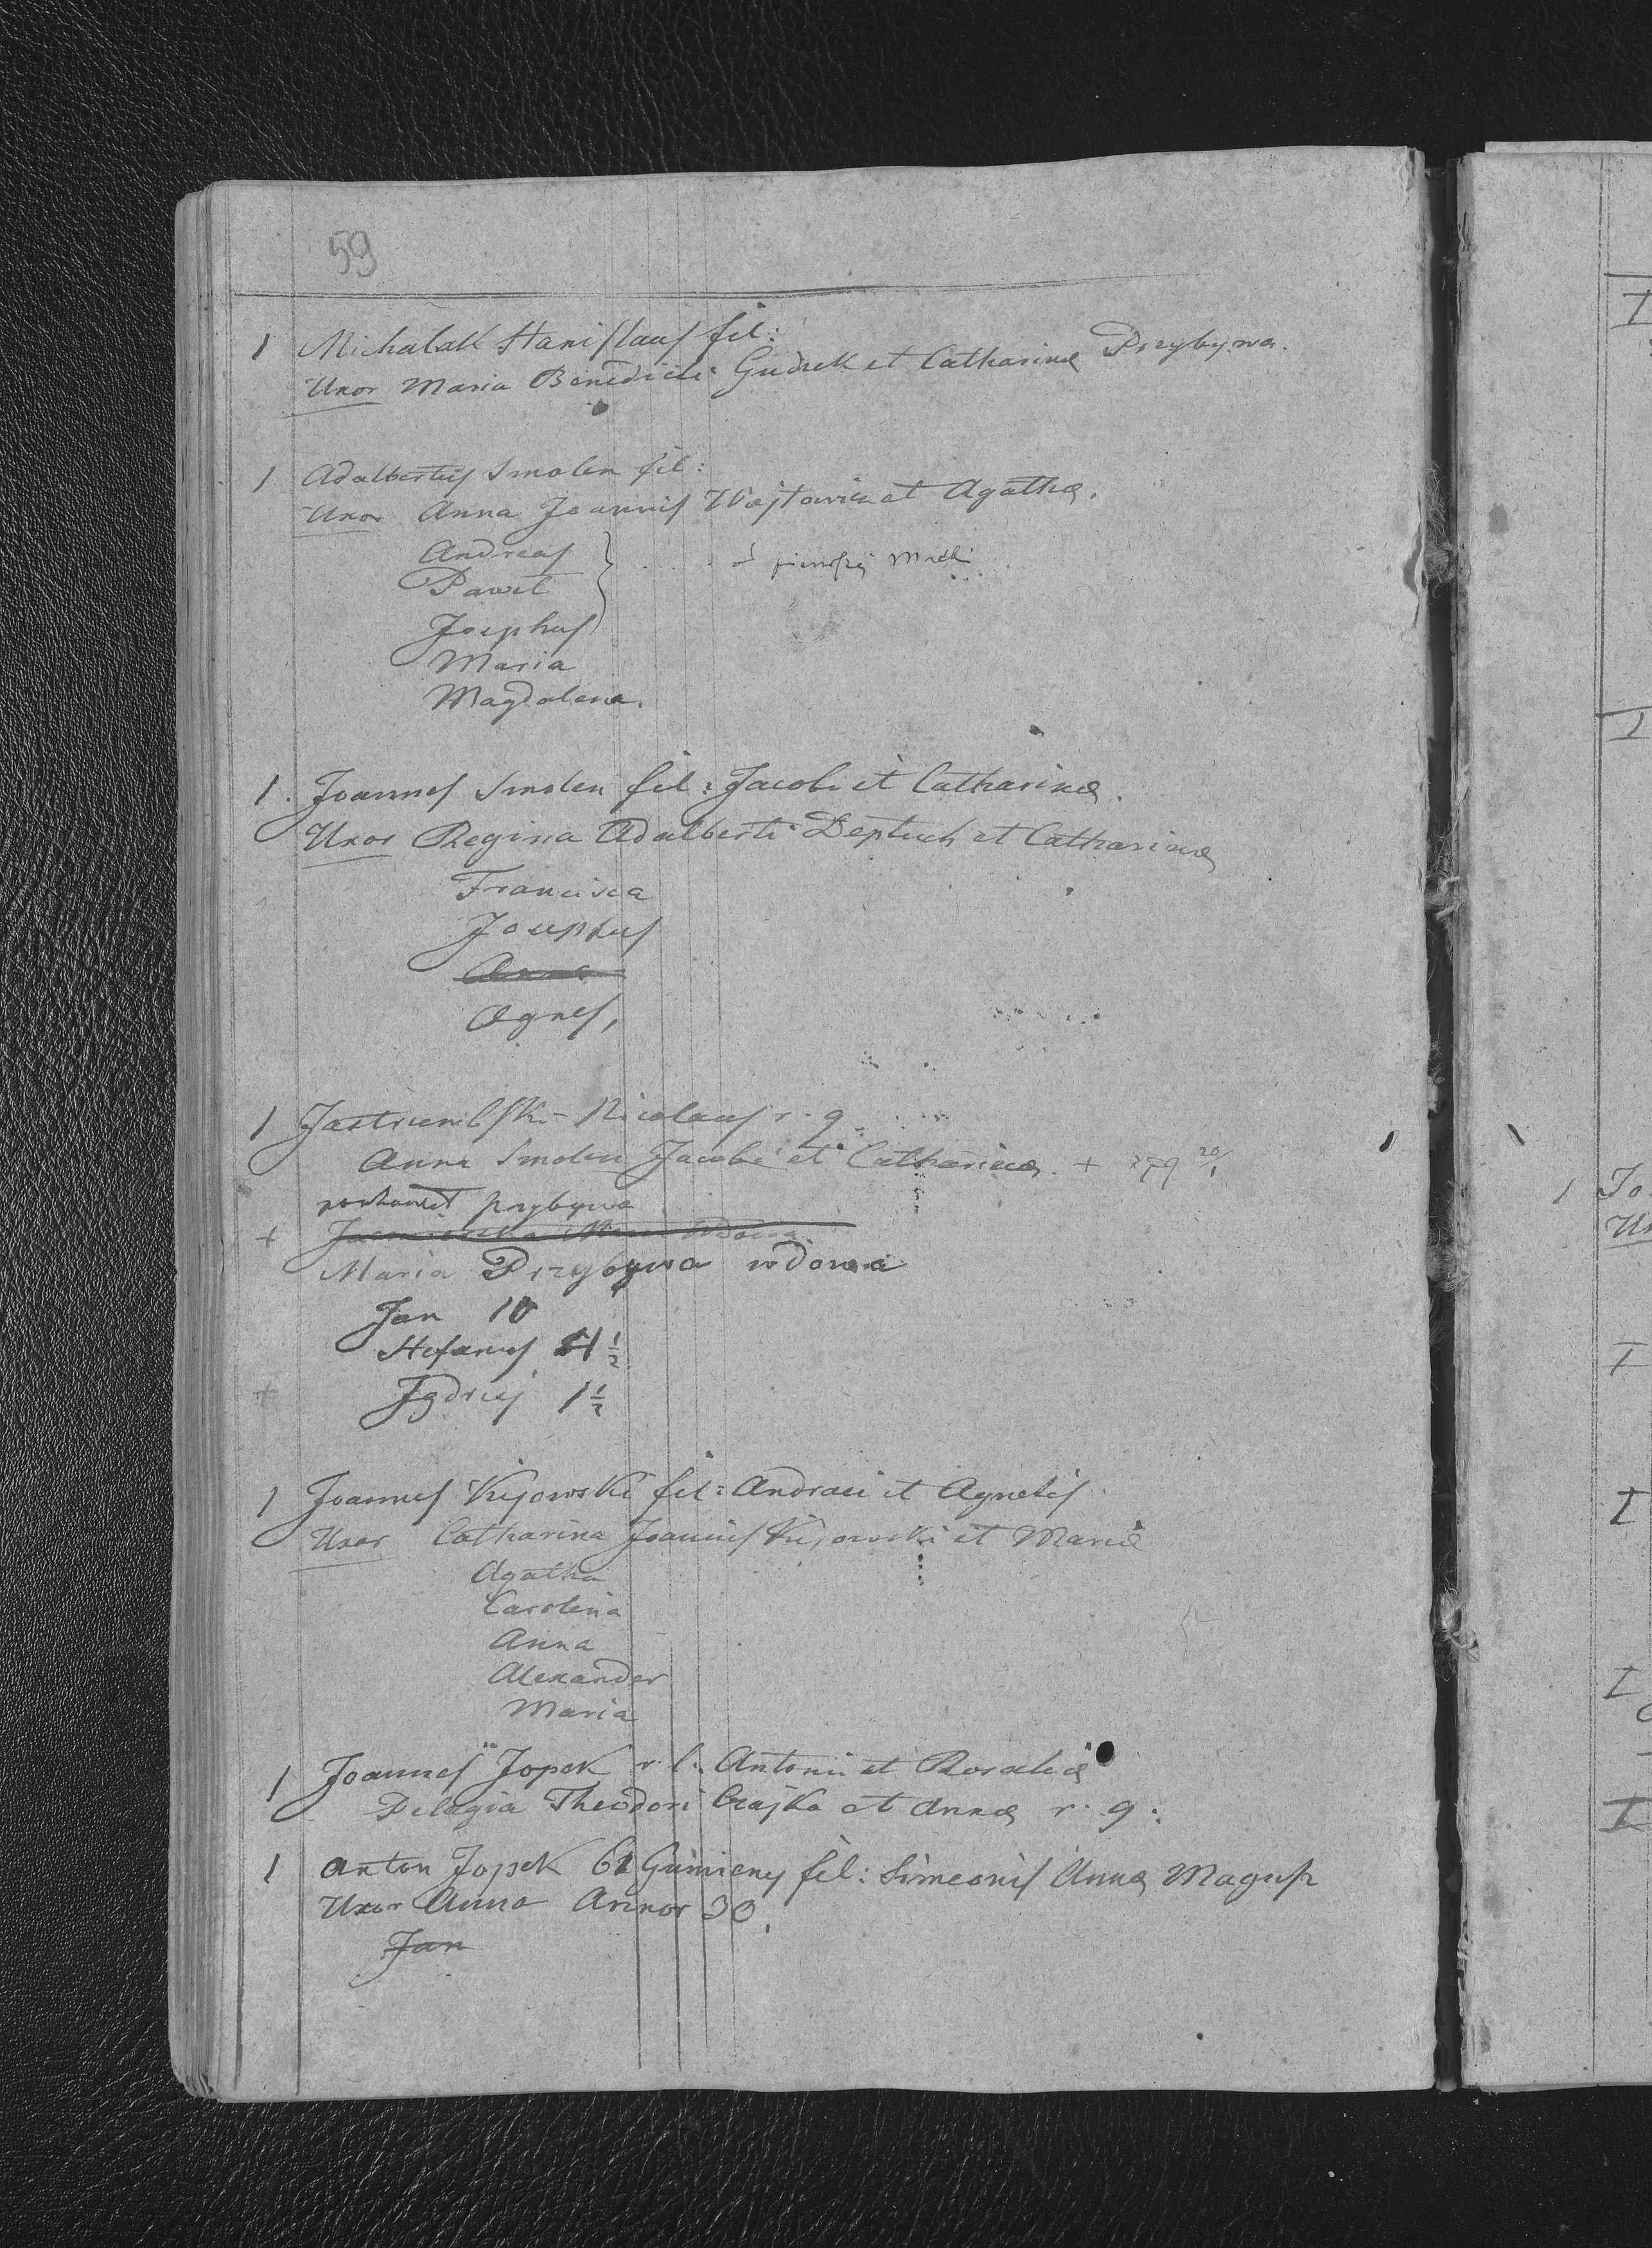 59
1 Michalak Stanislaus fil:
Uxor Maria Benedicti Gudzek et Catharinæ Przybywa.
1 Adalbertus Smolen fil:
Uxor Anna Joannis Wojtowicz et Agathæ.
Andreas
Paweł
Josephus
Maria
Magdalena.
1. Joannes Smolen fil: Jacobi et Catharinæ.
Uxor Regina Adalberti Deptuch et Catharinæ
Francisca
Josephus
Anna
Agnes,
1 Nicolaus r. g
Anna Smolen Jacobi et Catharinæ. + 20/1
przybywa
+ wdowa
Maria Przybywa wdowa
Jan 10
Stefanus 4 1/2
+ Jędrzej 1 1/2
1 Joannes Kijowski fil: Andreæ et Agnetis
Uxor Catharina Joannis Kijowski et Mariæ
Agatha
Carolina
Anna
Alexander
Maria
1 Joannes Jopek r. l. Antonii et Rosaliæ
Pelagia Theodori Czajka et Annæ r. g:
1 Anton Jopek fil: Simeonis Annæ
Uxor Anna Annor 30.
Jan